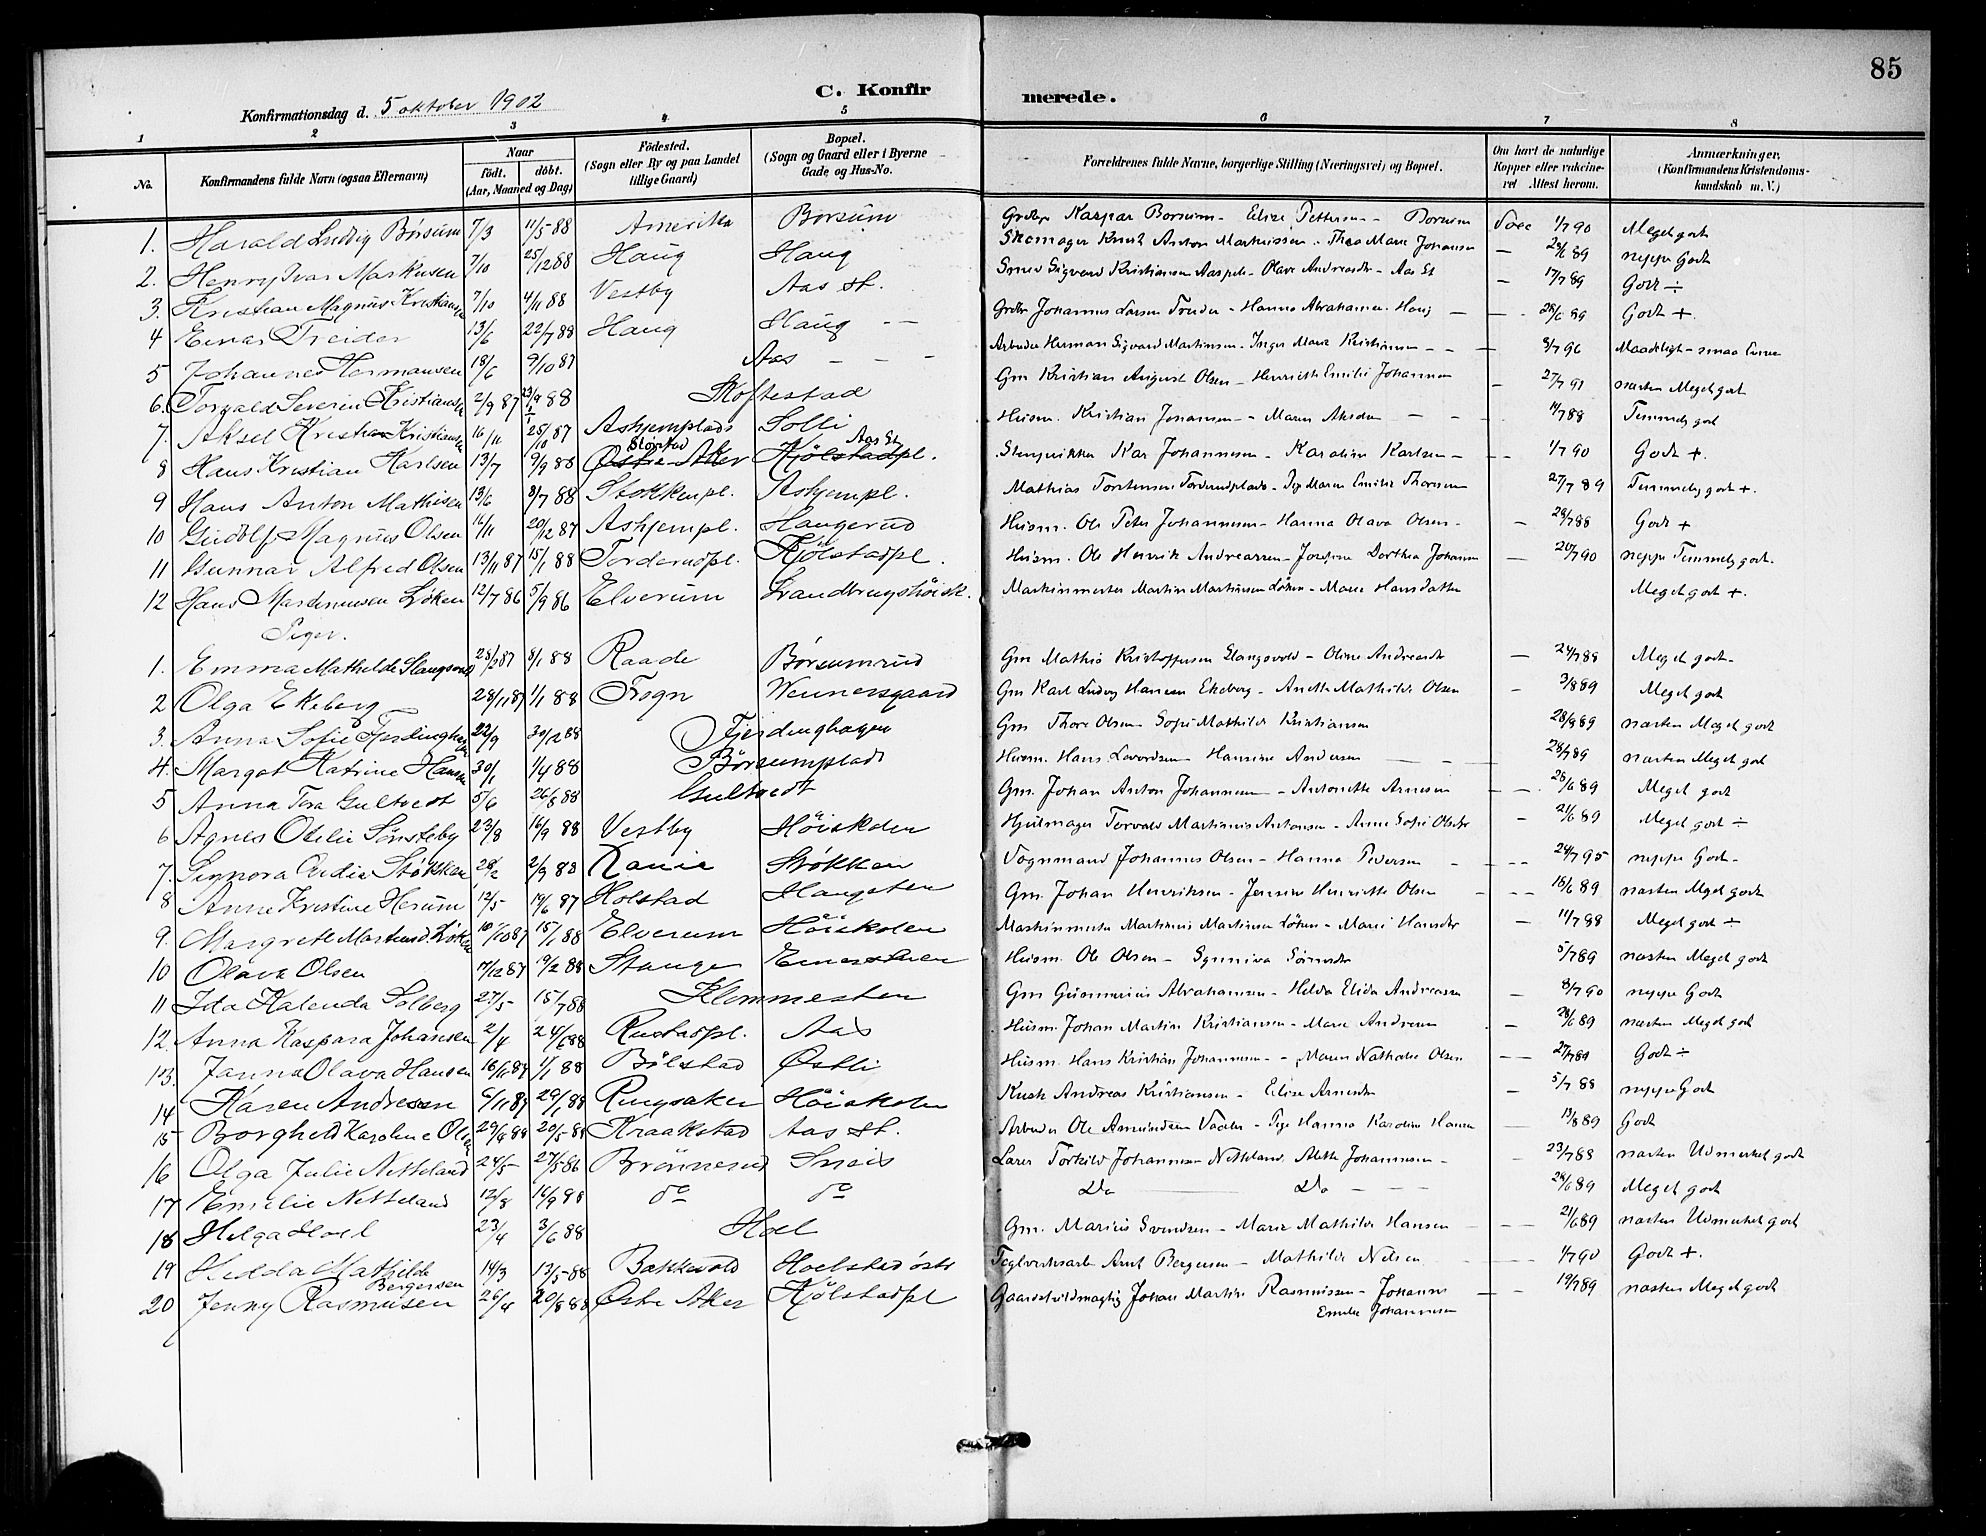 85
C. Konfirmerede.
Konfirmationsdag d. 5 oktober 1902
1 2 3 4 5 6 7 8
No.
Konfirmandens fulde Navn (ogsaa Efternavn)
Naar
født. døbt.
(Aar, Maaned og Dag)
Fødested.
(Sogn eller By og paa Landet
tillige Gaard)
Bopæl.
(Sogn og Gaard eller i Byerne
Gade og Hus-No.
Forældrenes fulde Navne, borgerlige Stilling (Næringsvei) og Bopæl.
Om havt de naturlige
Kopper eller vakcine-
ret Attest herom.
Anmærkninger.
(Konfirmandens Kristendoms-
kundskab m. V.)
1. Harald Ludvig Børsum 7/3 11/5 88 Amerika Børsum Kaspar Borsum - Elise Pettersen - Borsum 1/7 90 Meget godt
2. Henry Ivar Markusen 7/10 25/12 88 Haug Haug Skomager Knut Anton Markussen - Thea Marie Johansen — 28/6 89 neppe Godt
3. Kristian Magnus Kristiansen 7/10 4/11 88 Vestby Aas st. Smed Sigvard Kristiansen - Olave Andreasdtr - Aas St — 17/7 89 Godt ÷
4 Einar Treider 13/6 22/7 88 Haug Haug Johannes Larsen Treider - Hanna Abrahamsen - Haug — 28/6 89 Godt +.
5 Johannes Hermansen 18/6 9/10 87 Aas Arbeider Herman Sigvard Martinsen - Inger Marie Kristiansen — 8/7 96 Maadeligt - smaa Evner
6. Torvald Severin Kristiansen 2/9 87 88 Skoftestad Gm Kristian August Olsen - Henriette Emilie Johannsen — 27/7 91 næsten Meget godt
7. Aksel Kristian Kristiansen 16/11 25/10 87 Askjemplads Solli Husm. Kristian Johansen - Maren — 11/7 88 Temmelig godt
8 Hans Kristian Karlsen 13/7 9/9 88 Østre Aker Kjølstadpl. Aas St Karl Johannesen - Karoline Karlsen — 1/7 90 Godt +.
9 Hans Anton Mathisen 13/6 8/7 88 Stokkenpl. Askjempl. Mathias Torstensen Torderudplads - Maren Emilie Thoresen 27/7 89 Temmelig godt +.
10 Gudolf Magnus Olsen 16/11 20/12 87 Askjempl. Haugerud Husm. Ole Peter Johannesen - Hanna Olava Olsen — 28/7 88 Godt +
11 Gunnar Alfred Olsen 13/11 87 15/1 88 Torderudpl. Kjølstadpl. Husm. Ole Henrik Andreassen - Josefine Dorthea Johansen — 20/7 90 neppe Temmelig godt.
12 Hans Martinusen Løken 12/7 86 5/9 86 Elverum Landbrugshöisk. Maskinmester Martin Martinsen Löken - Marie Hansdatter Meget godt +.
Piger.
1. Emma Mathilde Slangsvold 8/1 88 Raade Børsumrud Gm Mathis Kristoffersen Slangsvold - Oline Andreasdtr — 24/7 88 Meget godt
2 Olga Ekeberg 28/11 87 1/1 88 Frogn Wennersgaard Gm Karl Ludvig Hansen Ekeberg - Anette Mathilde Olsen — 3/8 89 Meget godt
3. Anna Sofie Fjerdinghagen 22/9 30/12 88 Fjerdinghagen Gm Thore Olsen Sofie Mathilde Kristiansen 28/9 89 næsten Meget godt
4. Margot Katrine Hansen 30/1 1/4 88 Børsumplads Husm. Hans Lavardsen - Hansine Andersen — 28/7 89 næsten Meget godt
5 Anna Tora Gultvedt 5/6 26/8 88 Gultvedt Gm. Johan Anton Johannesen - Antonette Arnesen — 28/6 89 Meget godt
6 Agnes Otelie Sønsteby 23/8 16/9 88 Vestby Höiskolen Hjulmager Torvald Martinius Antonsen - Anne Sofie Olsdtr — 21/6 89 Meget godt ÷
7. Signora Støkken 28/2 2/9 88 Støkken Vognmand Johannes Olsen - Hanna Pedersen — 24/7 95 neppe Godt
8 Anne Kristine Herum 12/5 19/6 87 Holstad Haugeten Gm. Johan Henriksen - Jensine Henriette Olsen — 18/6 89 næsten Meget godt
9. Margrete Løken 10/10 87 15/1 88 Elverum Höiskolen Maskinmester Martinus Martinsen Löken - Marie Hansdtr — 11/7 88 Meget godt ÷
10 Olava Olsen 7/12 87 19/2 88 Stange Husm. Ole Olsen - — 5/7 89 næsten Meget godt
11 Ida Kalenda Solberg 27/5 15/7 88 Klommesten Gm Gunnerius Abrahamsen - Helda Elida Andreassen — 8/7 90 neppe Godt
12. Anna Kaspara Johansen 2/4 24/6 88 Rustadpl. Aas Husm. Johan Martin Kristiansen - Marie Andresen — 28/6 89 næsten Meget godt
13. Janna Olava Hansen 1/1 88 Bölstad Østli Husm. Hans Kristian Johannesen - Maren Nathalie Olsen — 27/7 89 Godt ÷
14 Karen Andresen 6/11 87 29/1 88 Ringsaker Höiskolen Kusk Andreas Kristiansen - Elise Arnesdtr — 5/7 88 neppe Godt
15 Borghild Karoline Olsen 20/5 88 Kraakstad Aas St. Arbeider Ole Amundsen Vaaler - Pige Hanna Karoline Hansen — 13/8 89 Godt
16 Olga Julie Netteland 24/5 27/5 86 Brønnerud Sneis Lærer Torkild Johannesen Netteland, Alette Johannesen — 23/7 88 næsten Udmerket godt
17 Emelie Netteland 12/8 16/9 88 do do Do — Do 28/6 89 Meget godt
18 Helga Hoel 23/4 3/6 88 Hoel Gm. Marius Svendsen - Marie Mathilde Hansen — 21/6 89 næsten Udmerket godt
19 Hedda Mathilde Bergersen 14/3 13/5 88 Bakkevold Teglverksarb. Amt Bergersen - Mathilde Nilsen 1/7 90 Godt +.
20 Jenny Rasmusen 26/4 20/8 88 Østre Aker Kjølstadpl Johan Martin Rasmussen - Johanne
Emilie Johannesen — 19/7 89 næsten Meget godt